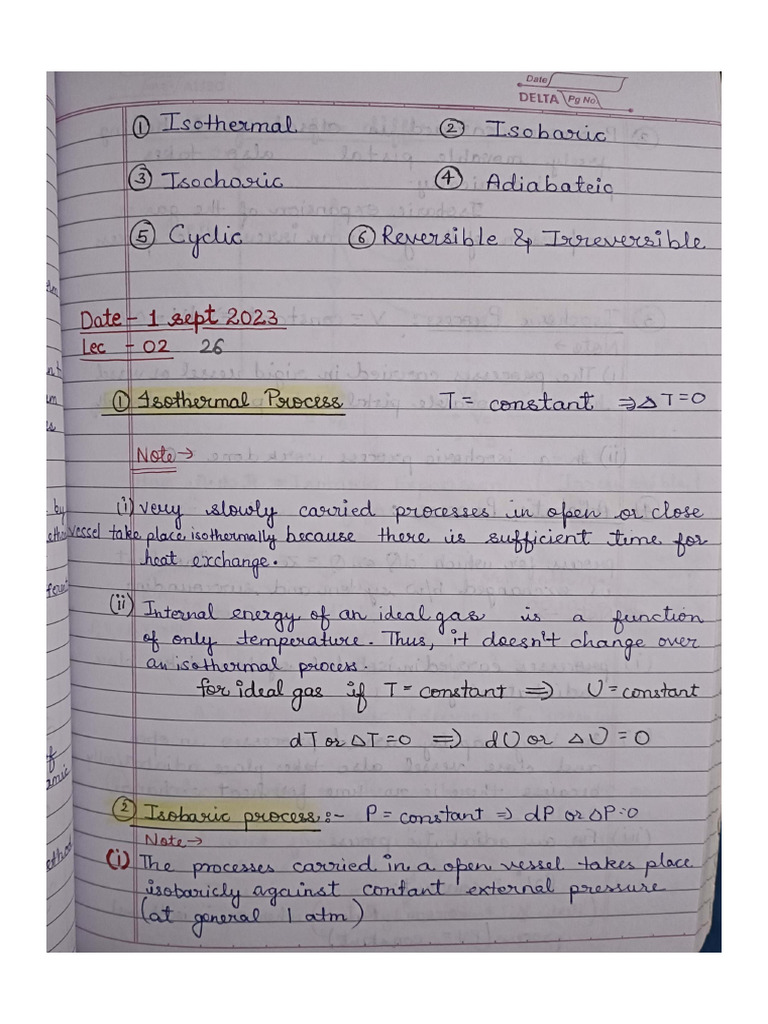 Date
DELTA Pg No.
① Isothermal ② Isobaric
③ Isochoric ④ Adiabateic
⑤ Cyclic ⑥ Reversible & Irreversible
Date - 1 sept 2023
Lec - 02 26
① Isothermal Process T = constant ⇒ ΔT=0
Note →
(i) very slowly carried processes in open or close
vessel take place isothermally because there is sufficient time for
heat exchange.
(ii) Internal energy of an ideal gas is a function
of only temperature. Thus, it doesn't change over
an isothermal process.
for ideal gas if T = constant ⇒ U = constant
dT or ΔT=0 ⇒ dU or ΔU = 0
② Isobaric process:- P = constant ⇒ dP or ΔP=0
Note →
(i) The processes carried in a open vessel takes place
isobaricly against contant external pressure
(at general 1 atm)